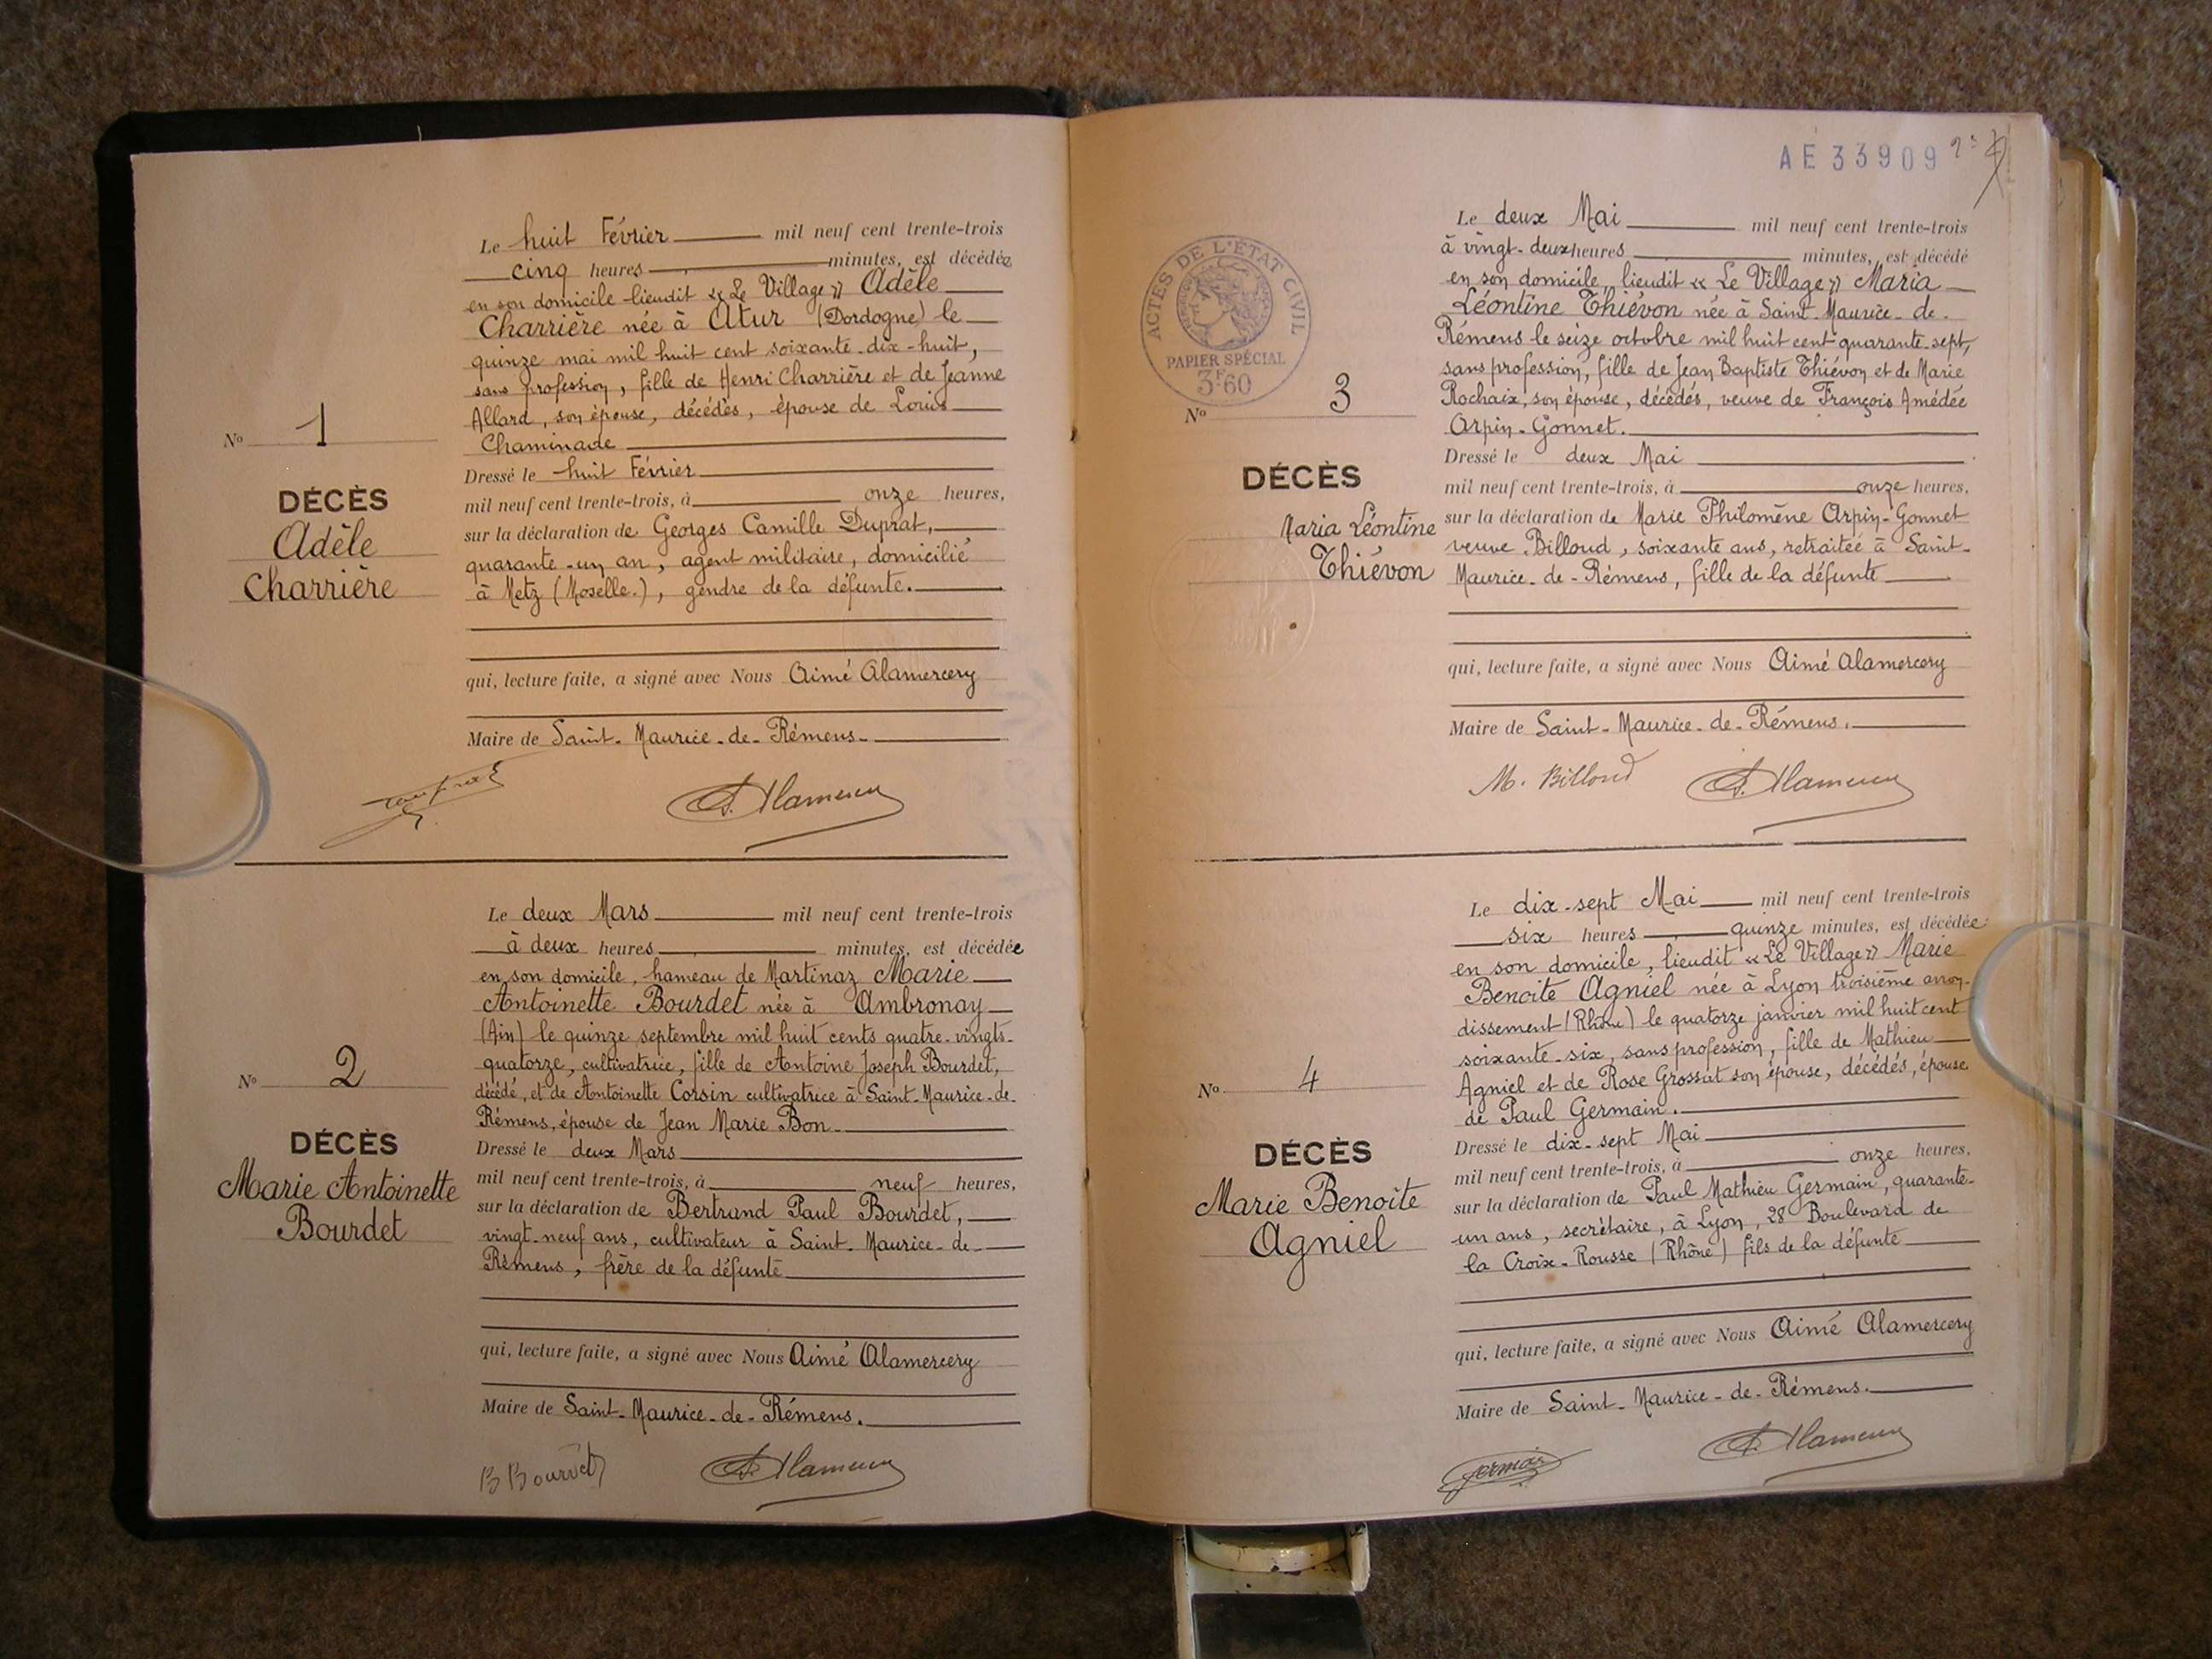 Le huit Février mil neuf cent trente-trois
cinq heures minutes, est décédée
en son domicile lieudit « Le Village » Adèle
Charrière née à Atur (Dordogne) le
quinze mai mil huit cent soixante-dix-huit,
sans profession, fille de Henri Charrière et de Jeanne
Allard, son épouse, décédés, épouse de Louis
Chaminade
Nº 1
DÉCÈS
Adèle
Charrière
Dressé le huit Février
mil neuf cent trente-trois, à onze heures,
sur la déclaration de Georges Camille Duprat,
quarante-un an, agent militaire, domicilié
à Metz (Moselle.), gendre de la défunte.
qui, lecture faite, a signé avec Nous Aimé Alamercery
Maire de Saint-Maurice-de-Rémens.
A. Alamercery
Le deux Mars mil neuf cent trente-trois
à deux heures minutes, est décédée
en son domicile, hameau de Martinaz Marie
Antoinette Bourdet née à Ambronay
(Ain) le quinze septembre mil huit cents quatre-vingts-
quatorze, cultivatrice, fille de Antoine Joseph Bourdet,
décédé, et de Antoinette Corsin cultivatrice à Saint-Maurice-de-
Rémens, épouse de Jean Marie Bon
Nº 2
DÉCÈS
Marie Antoinette
Bourdet
Dressé le deux Mars
mil neuf cent trente-trois, à neuf heures,
sur la déclaration de Bertrand Paul Bourdet,
vingt-neuf ans, cultivateur à Saint-Maurice-de-
Rémens, frère de la défunte
qui, lecture faite, a signé avec Nous Aimé Alamercery
Maire de Saint-Maurice-de-Rémens.
B Bourdet A. Alamercery
AE 33909
ACTES DE L'ÉTAT CIVIL
PAPIER SPÉCIAL
3F60
Le deux Mai mil neuf cent trente-trois
à vingt-deux heures minutes, est décédé
en son domicile, lieudit « Le Village » Maria
Léontine Thiévon née à Saint-Maurice-de-
Rémens le seize octobre mil huit cent quarante-sept,
sans profession, fille de Jean Baptiste Thiévon et de Marie
Rochaix, son épouse, décédés, veuve de François Amédée
Arpin-Gonnet.
Nº 3
DÉCÈS
Maria Léontine
Thiévon
Dressé le deux Mai
mil neuf cent trente-trois, à onze heures,
sur la déclaration de Marie Philomène Arpin-Gonnet
veuve Billoud, soixante ans, retraitée à Saint-
Maurice-de-Rémens, fille de la défunte
qui, lecture faite, a signé avec Nous Aimé Alamercery
Maire de Saint-Maurice-de-Rémens.
M. Billoud A. Alamercery
Le dix-sept Mai mil neuf cent trente-trois
six heures quinze minutes, est décédée
en son domicile, lieudit « Le Village » Marie
Benoîte Agniel née à Lyon troisième arron-
dissement (Rhône) le quatorze janvier mil huit cent
soixante-six, sans profession, fille de Mathieu
Agniel et de Rose Grossat son épouse, décédés, épouse
de Paul Germain.
Nº 4
DÉCÈS
Marie Benoîte
Agniel
Dressé le dix-sept Mai
mil neuf cent trente-trois, à onze heures,
sur la déclaration de Paul Mathieu Germain, quarante-
un ans, secrétaire, à Lyon, 28 Boulevard de
la Croix-Rousse (Rhône) fils de la défunte
qui, lecture faite, a signé avec Nous Aimé Alamercery
Maire de Saint-Maurice-de-Rémens.
Germain A. Alamercery